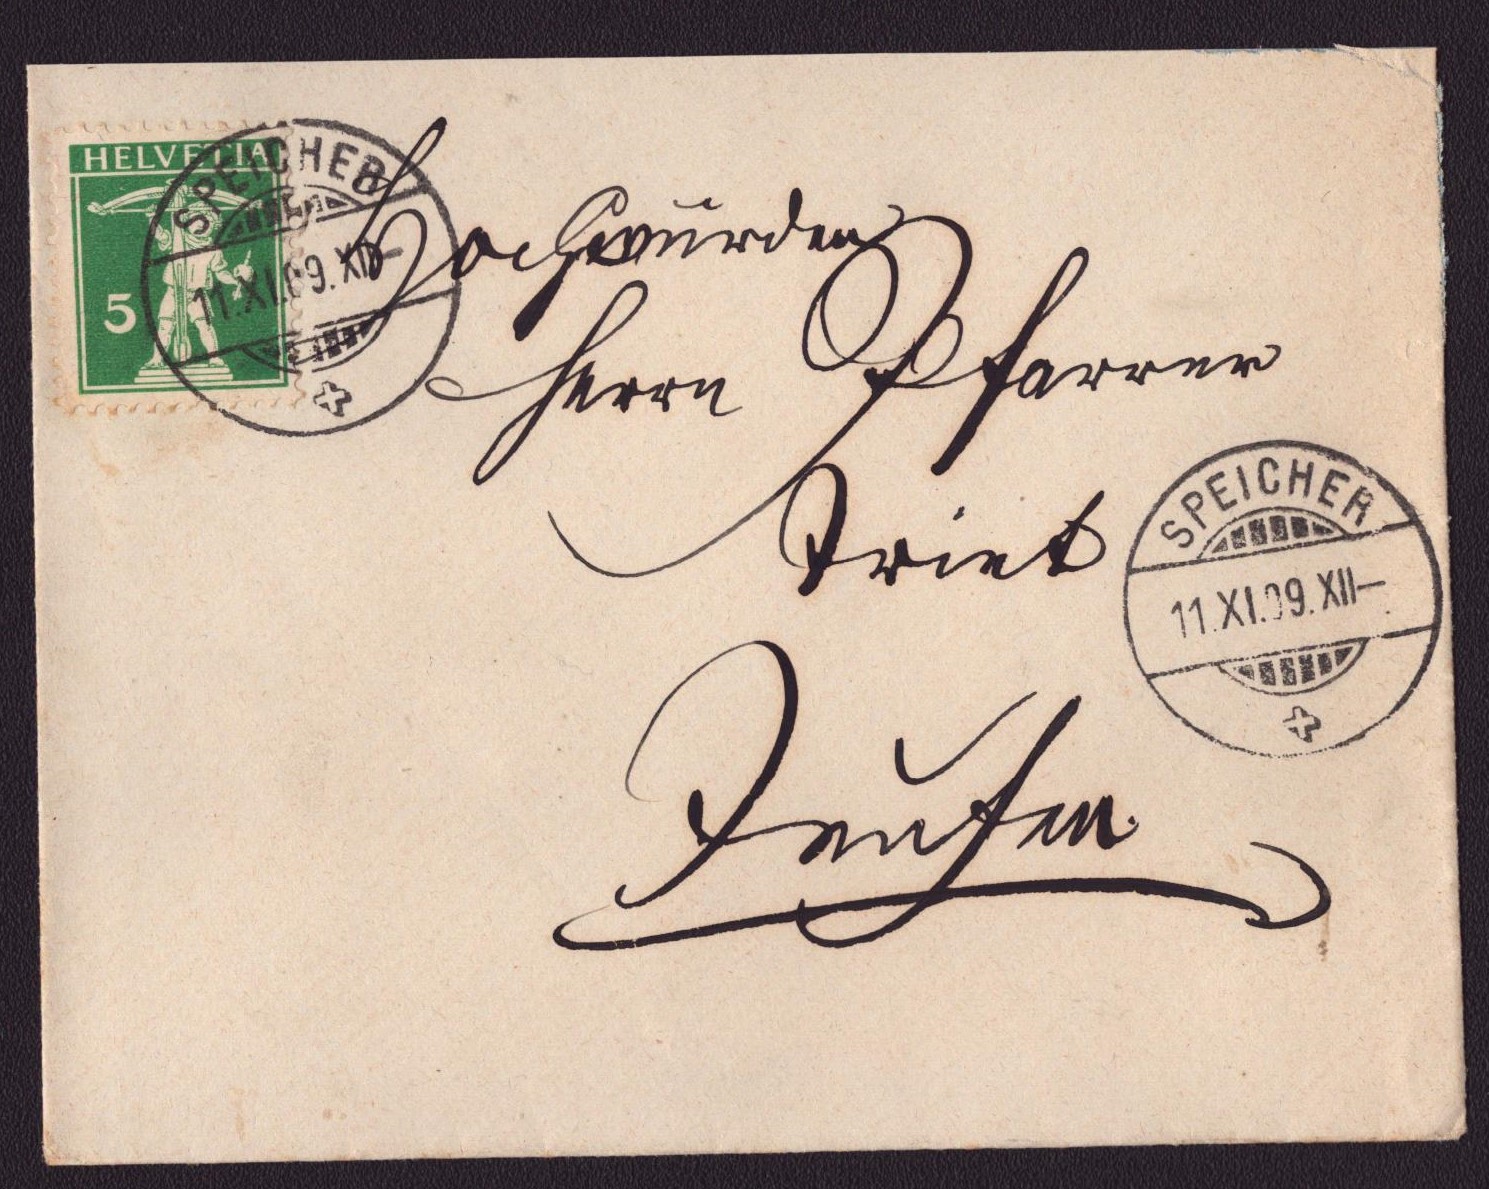 HELVETIA
5
SPEICHER
11.XI.09.XII—
Hochwürden
Herrn Pfarrer
Triet
Teufen.
SPEICHER
11.XI.09.XII—